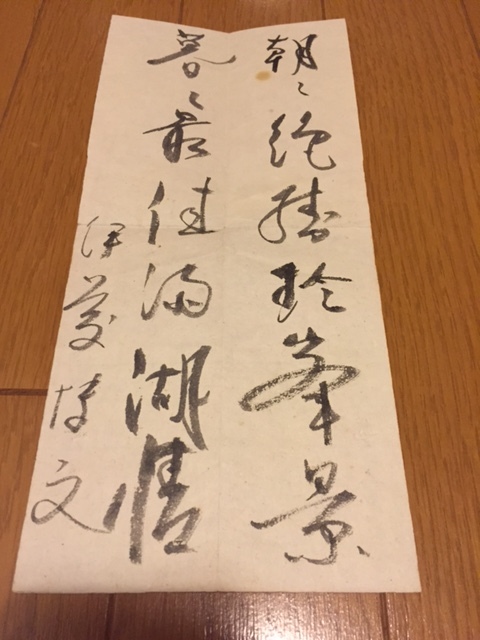 朝々絶勝珍峯景
暮々最佳満湖情
伊藤博文